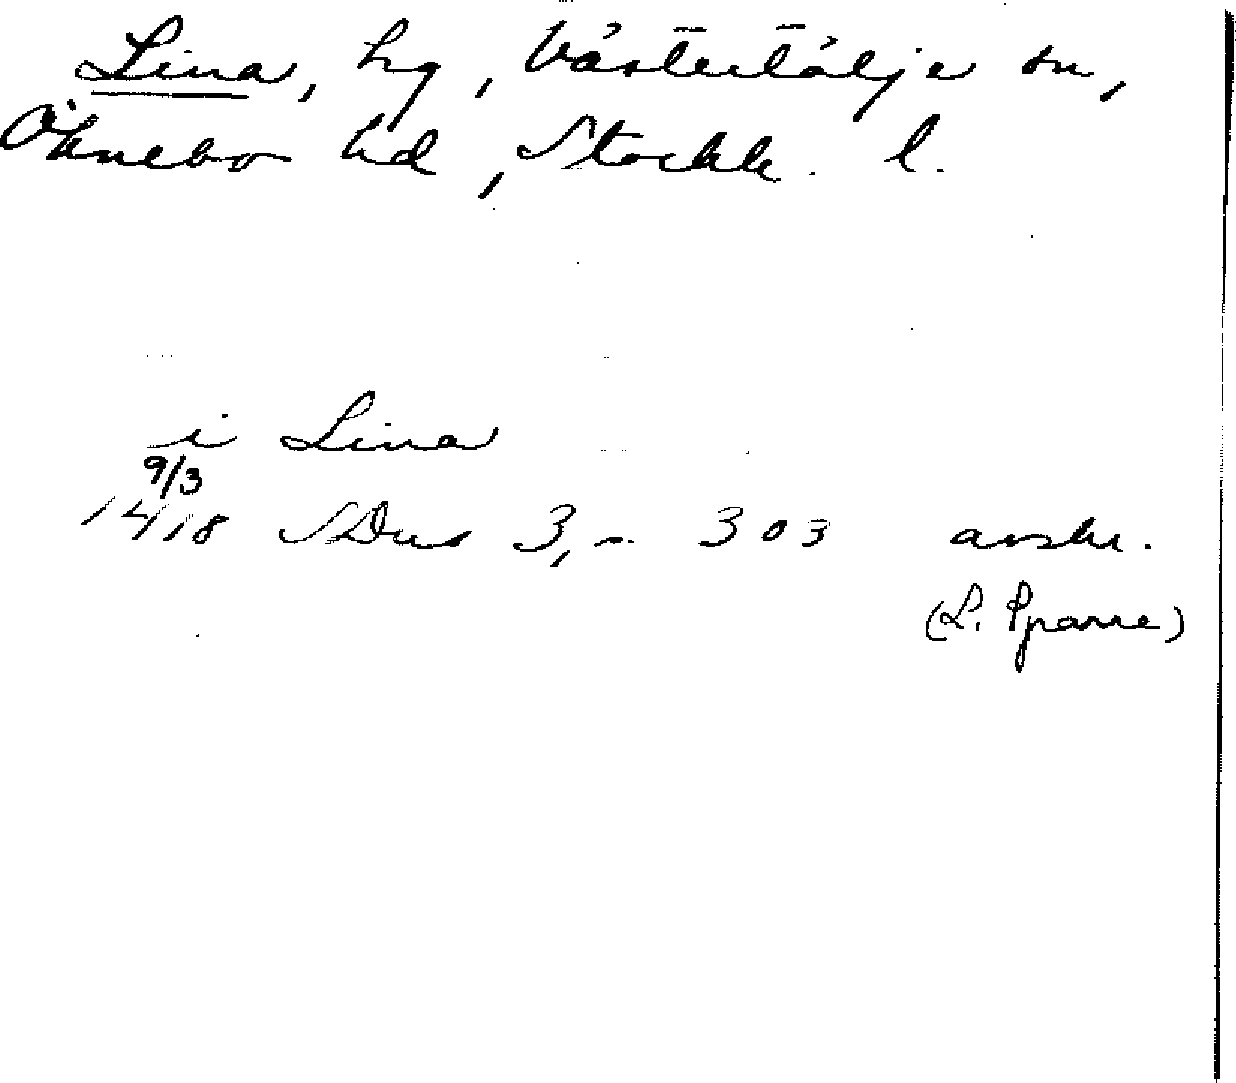 Lina, hg, Västertälje sn,
Öknebo hd, Stockh. l.
i Lina
9/3
1418 SDns 3, s. 303 avskr.
(L. Sparre)